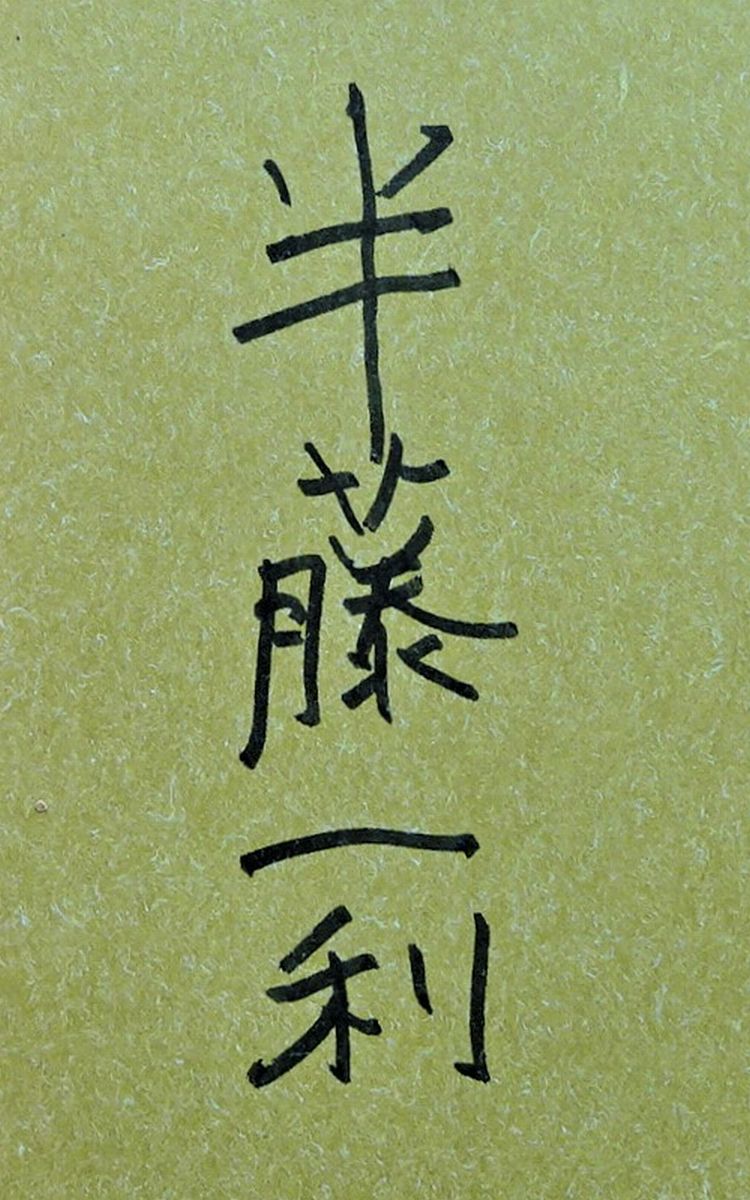 半藤一利